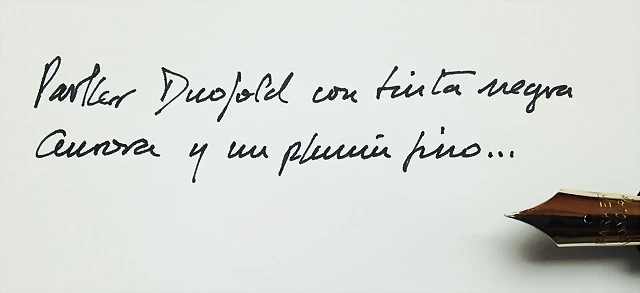 Parker Duofold con tinta negra
Aurora y un plumín fino...